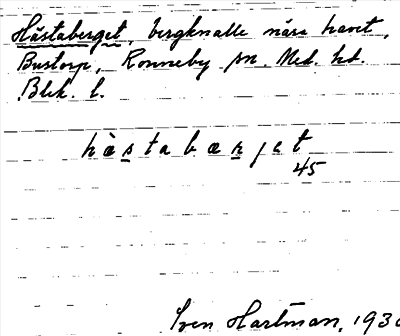 Hästaberget, bergknalle nära havet,
Bustorp, Ronneby sn. Med. hd.
Blek. l.
hàstabærjet
45
Sven Hartman, 193